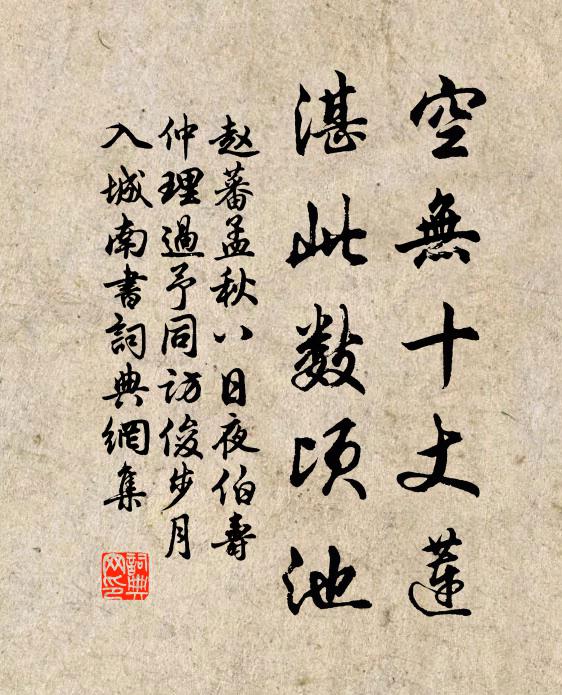 空無十丈蓮
湛此數頃池
赵蕃孟秋八日夜伯壽
仲理過予同訪俊步月
入城南書詞典網集
詞典
网印